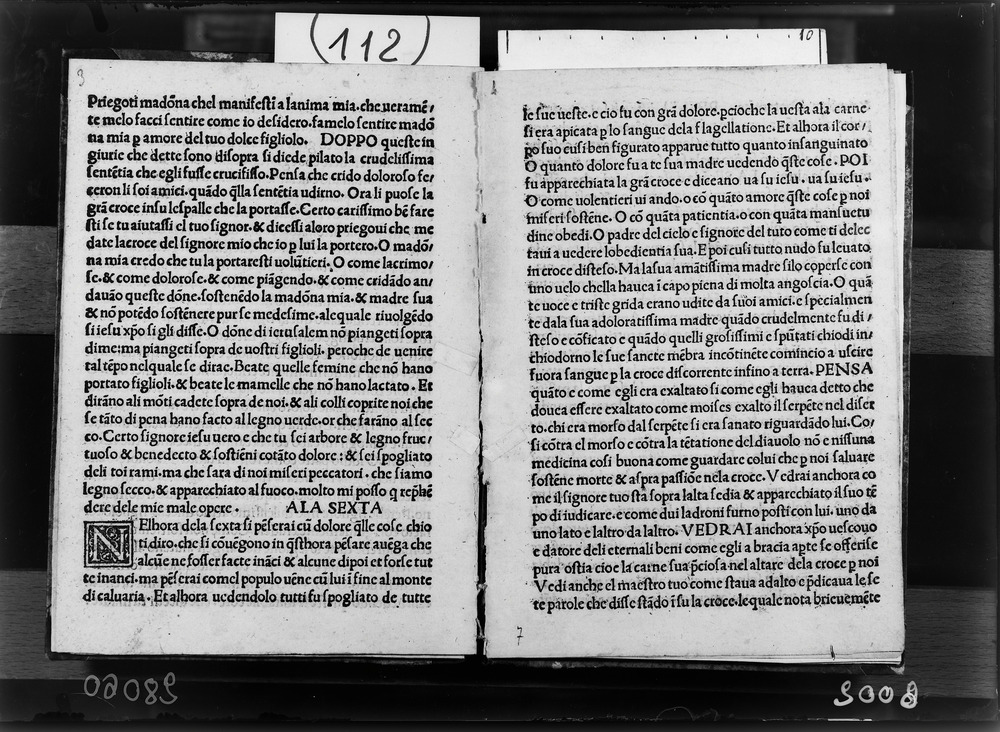 (112)
10
3
Priegoti madōna chel manifesti a lanima mia.che ueramē/
te melo facci sentire come io desidero.famelo sentire madō
na mia ꝑ amore del tuo dolce figliolo. DOPPO queste in
giurie che dette sono disopra si diede pilato la crudelissima
sentētia che egli fusse crucifisso.Pensa che crido doloroso fe/
ceron li soi amici.quādo q̄lla sentētia udirno. Ora li puose la
grā croce insu lespalle che la portasse.Certo carissimo bē fare
sti se tu aiutassi el tuo signor.& dicessi aloro priegoui che me
date lacroce del signore mio che io ꝑ lui la portero.O madō/
na mia credo che tu la portaresti uolūtieri.O come lacrimo/
se.& come dolorose.& come piāgendo.& come cridādo an/
dauāo queste dōne.sostenēdo la madōna mia.& madre sua
& nō potēdo sostēnere pur se medesime.ale quale riuolgēdo
si iesu xp̄o si gli disse.O dōne di ierusalem nō piangeti sopra
dime:ma piangeti sopra de uostri figlioli. peroche de uenire
tal tēpo nelquale se dirae.Beate quelle femine che nō hano
portato figlioli.& beate le mamelle che nō hano lactato. Et
dirāno ali mōti cadete sopra de noi.& ali colli coprite noi che
se tāto di pena hano facto al legno uerde.or che farāno al sec
co.Certo signore iesu uero e che tu sei arbore & legno fruc/
tuoso & benedecto & sostiēni cotāto dolore:& sei spogliato
deli toi rami.ma che sara di noi miseri peccatori.che siamo
legno secco.& apparechiato al fuoco.molto mi posso q̄ rephē
dere dele mie male opere. ALA SEXTA
NElhora dela sexta si pēserai cū dolore q̄lle cose chio
ti diro.che si cōuēgono in q̄sthora pēsare auēga che
alcūe ne fosser facte ināci & alcune dipoi et forse tut
te inanci.ma pēserai comel populo uēne cū lui ī fine al monte
di caluaria. Et alhora uedendolo tutti fu spogliato de tutte
le sue ueste.e cio fu con grā dolore.ꝑcioche la uesta ala carne
si era apicata ꝑ lo sangue dela flagellatione.Et alhora il cor/
po suo cusi ben figurato apparue tutto quanto insanguinato
O quanto dolore fu a te sua madre uedendo q̄ste cose. POI
fu apparechiata la grā croce e diceano ua su iesu. ua su iesu.
O come uolentieri ui ando.o cō quāto amore q̄ste cose ꝑ noi
miseri sostēne. O cō quāta patientia.o con quāta mansuetu
dine obedi. O padre del cielo e signore del tuto come ti delec
taui a uedere lobedientia sua.E poi cusi tutto nudo fu leuato
in croce disteso. Ma lasua amātissima madre silo coperse con
uno uelo chella hauea ī capo piena di molta angoscia.O quā
te uoce e triste grida erano udite da suoi amici.e specialmen
te dala sua adoloratissima madre quādo crudelmente fu di/
steso e cōficato e quādo quelli grossissimi e spūtati chiodi in/
chiodorno le sue sancte mēbra incōtinēte comincio a uscire
fuora sangue ꝑ la croce discorrente infino a terra. PENSA
quāto e come egli era exaltato si come egli hauea detto che
douea essere exaltato come moises exalto il serpēte nel diser
to.chi era morso dal serpēte si era sanato riguardādo lui.Co/
si cōtra el morso e cōtra la tētatione del diauolo nō e nissuna
medicina cosi buona come guardare colui che ꝑ noi saluare
sostēne morte & aspra passiōe nela croce. Vedrai anchora co
me il signore tuo sta sopra lalta sedia & apparechiato il suo tē
po di iudicare.e come dui ladroni furno posti con lui. uno da
uno lato e laltro da laltro. VEDRAI anchora xp̄o uescouo
e datore deli eternali beni come egli a bracia apte se offerise
pura ostia cioe la carne sua p̄ciosa.nel altare dela croce ꝑ noi
Vedi anche el maestro tuo come staua ad alto e p̄dicaua le se
te parole che disse stādo ī su la croce.le quale nota brieuemēte
7